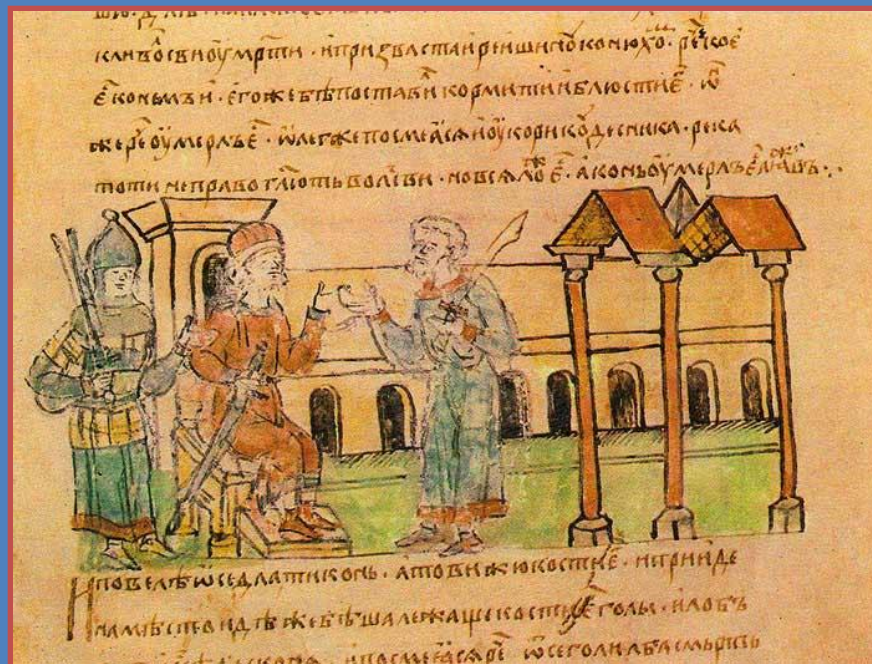 кли волсви оумрти · и призва стареишинѹ конюхо · ре кое
е конь мъи · его же бѣ поставил кормити и блюсти е · ѡ
же рече оумерлъ е · ѡлег же посмеася и оукори кѹдесника · река
то ти неправо глють волсви · но вся лож е · а конь оумерлъ е
И повелѣ ѡседлати конь · а то вижю кости е · и прииде
на мѣсто идѣже бѣша лежаще кости е голы · и лобъ
коня · и посмеася ре ѡ сего ли лба смрть